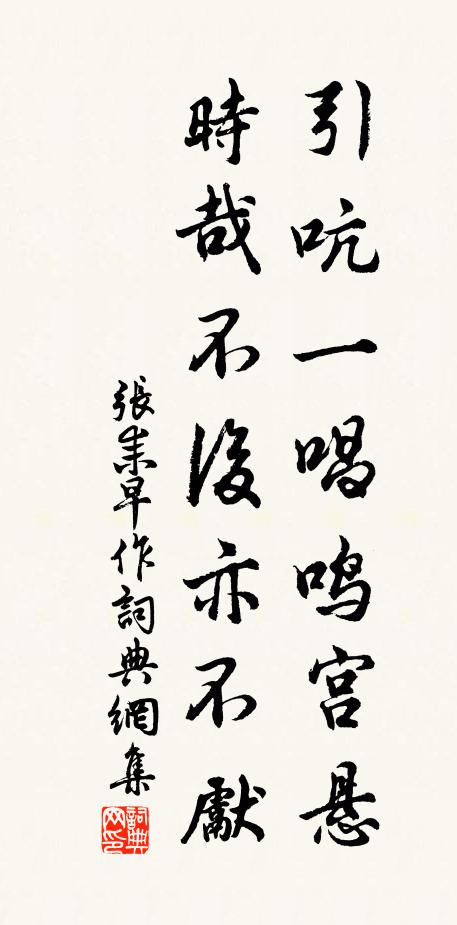 引吭一唱鸣宫悬
時哉不後亦不獻
張耒早作詞典網集
詞典网印